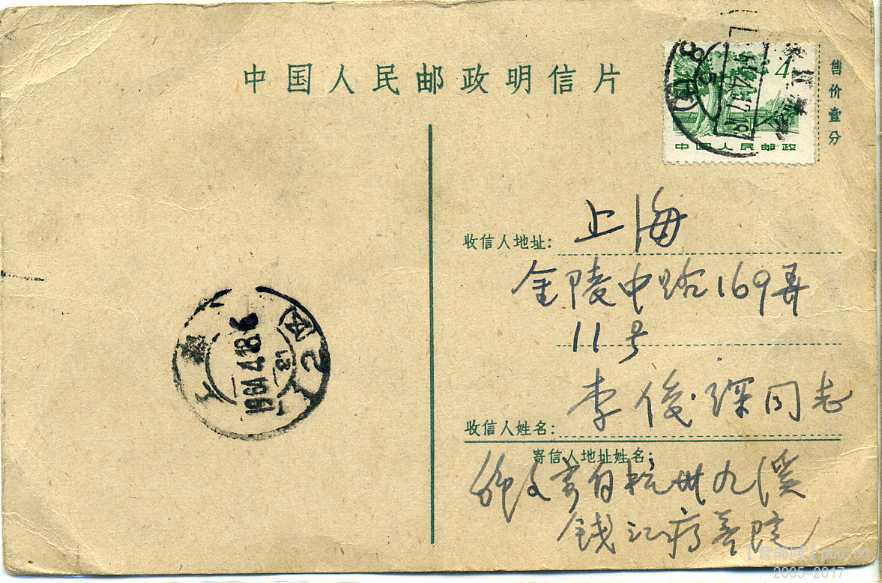 中国人民邮政明信片
售价壹分
4
中国人民邮政
收信人地址: 上海
金陵中路169弄
11号
李俊琛同志
收信人姓名:
寄信人地址姓名:
寄自杭州九溪
钱江疗养院
上海
1964.4.18.6
2005-2017